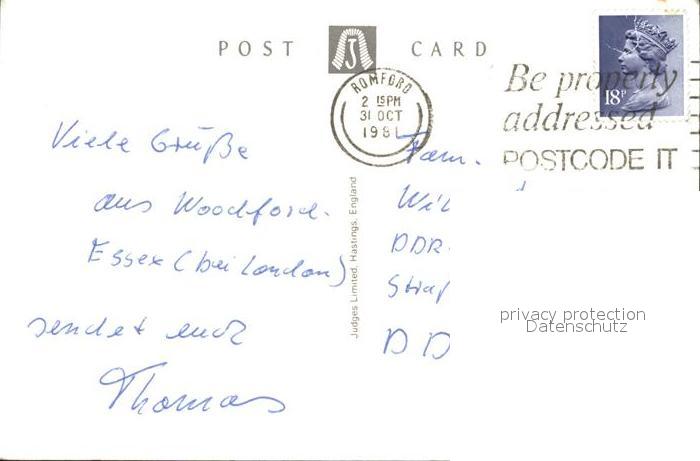 POST CARD
ROMFORD
2 15PM
31 OCT
1981
18P
Be properly
addressed
POSTCODE IT
Viele Grüße
aus Woodford.
Essex (bei London)
sendet euch
Thomas
Judges Limited, Hastings, England
Fam.
DDR
D D
privacy protection
Datenschutz